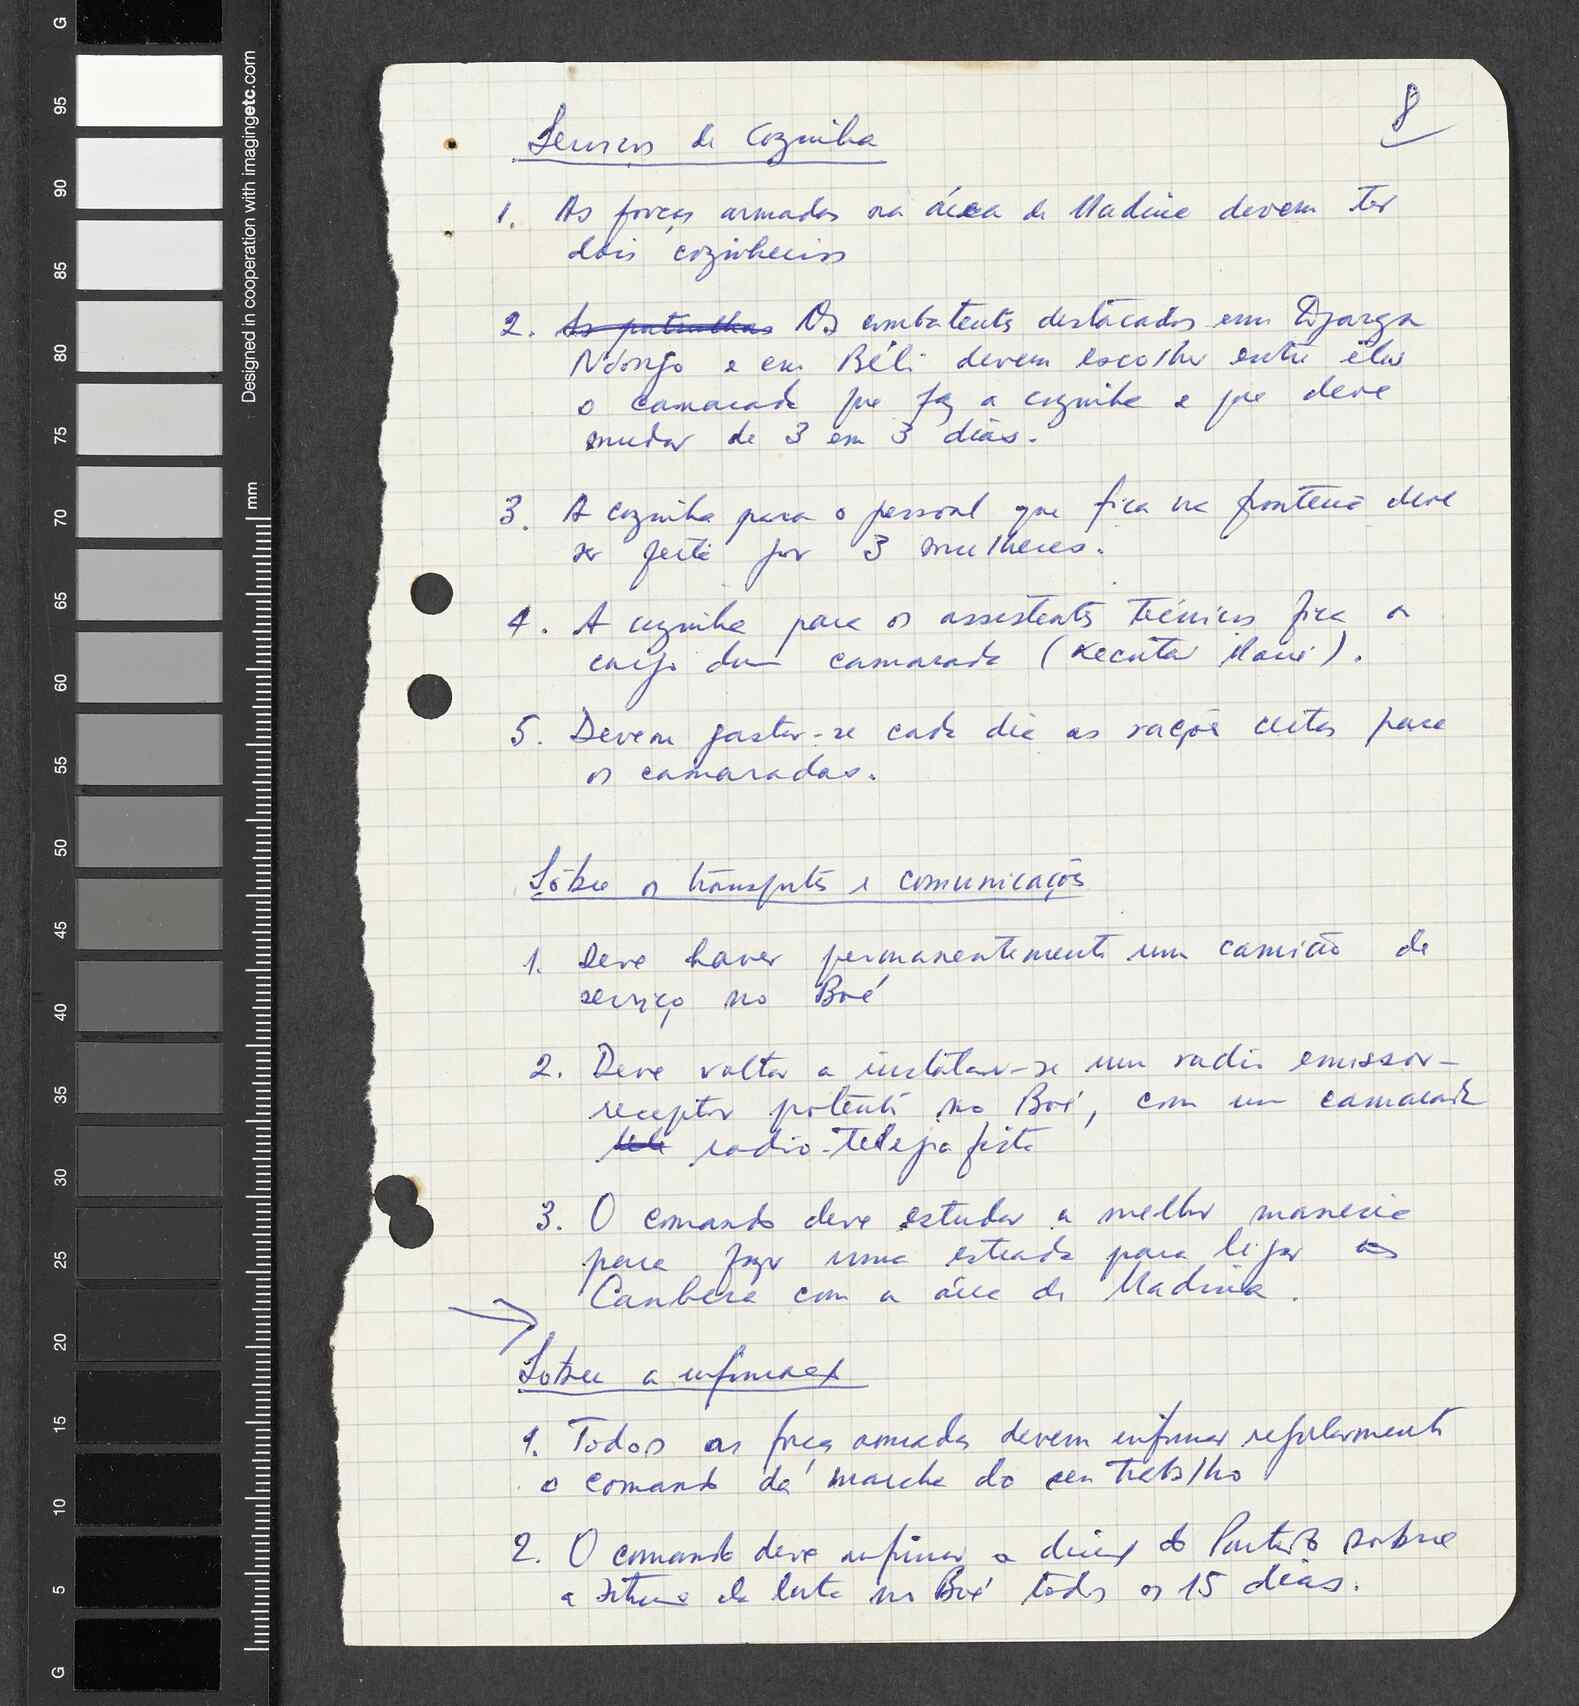 8
Serviços de Cozinha
1. As forças armadas na área de Madina devem ter
dois cozinheiros
2. As patrulhas Os combatentes destacados em Djarga
Ndongo e em Béli devem escolher entre eles
o camarada que faz a cozinha e que deve
mudar de 3 em 3 dias.
3. A cozinha para o pessoal que fica na fronteira deve
ser feita por 3 mulheres.
4. A cozinha para os assistentes técnicos fica a
cargo dum camarada (Kecuta Mané).
5. Devem gastar-se cada dia as rações certas para
os camaradas.
Sôbre os transportes e comunicações
1. Deve haver permanentemente um camião de
serviço no Boé
2. Deve voltar a instalar-se um radio emissor-
receptor potente no Boé, com um camarada
radio-telegrafista
3. O comando deve estudar a melhor maneira
para fazer uma estrada para ligar
Cambera com a área de Madina.
Sôbre a informação
1. Todos as forças armadas devem informar regularmente
o comando da marcha do seu trabalho
2. O comando deve informar a direcção do Partido sobre
a situação da luta no Boé todos os 15 dias.
G
95
90
85
80
75
70
65
60
55
50
45
40
35
30
25
20
15
10
5
G
Designed in cooperation with imagingetc.com
mm